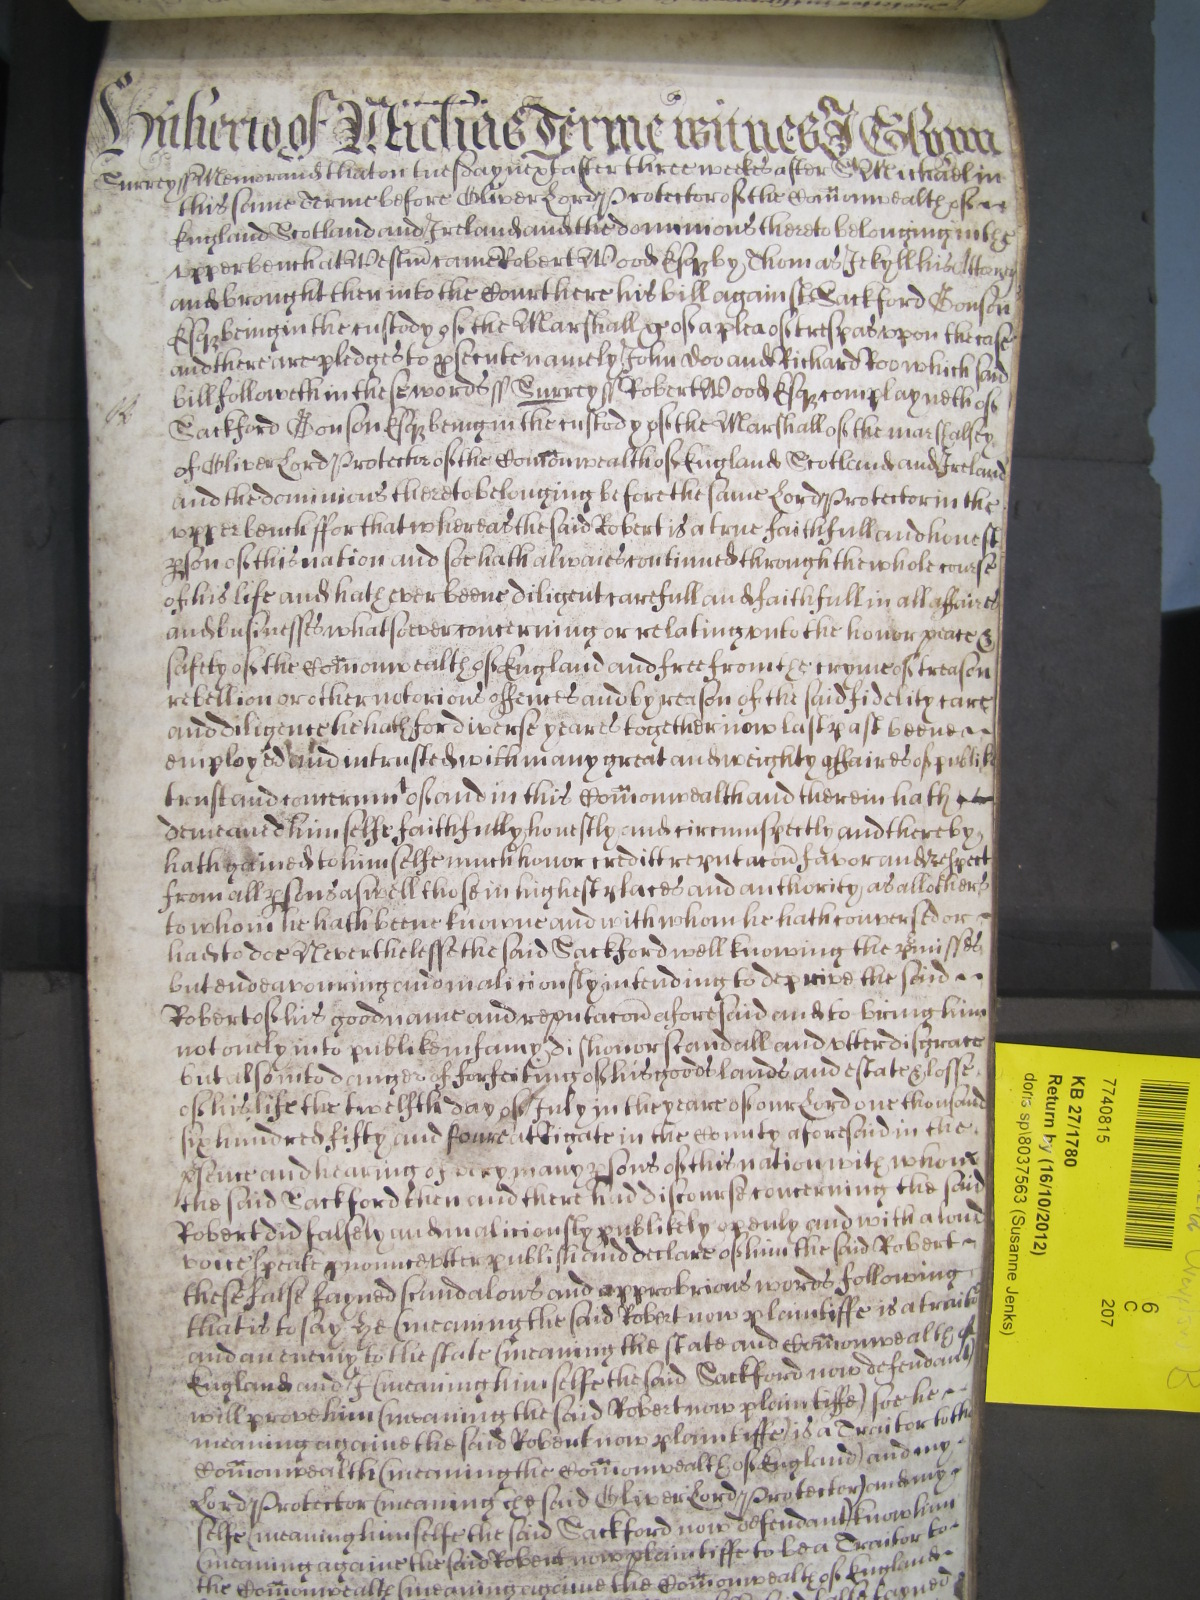 Hitherto of Michas Terme witnes J Glynn
Surrey ss Memorand that on tuesday next after three weekes after St Michael in
this same Terme before Oliver Lord Protector of the Comonwealth of
England Scotland and Ireland and the dominions thereto belonging in the
upper bench at Westm came Robert Wood Esqr by Thomas Jekyll his Attorney
and brought then into the Court here his bill against Sackford Gonson
Esqr being in the custody of the Marshall &c of a plea of trespas upon the case
and there are pledges to psecute namely John Doo and Richard Roo which said
bill followeth in these words ss Surrey ss Robert Wood Esqr complayneth of
Sackford Gonson Esqr being in the custody of the Marshall of the marshalsey
of Oliver Lord Protector of the Comonwealth of England Scotland and Ireland
and the dominions thereto belonging before the same Lord Protector in the
upper bench ffor that whereas the said Robert is a true faithfull and honest
pson of this nation and soe hath alwaies continued through the whole course
of his life and hath ever beene diligent carefull and faithfull in all affaires
and businesses whatsoever concerning or relating unto the honor peace &
safety of the Comonwealth of England and free from the cryme of treason
rebellion or other notorious offences and by reason of the said fidelity care
and diligence he hath for diverse yeares together now last past beene
employed and intrusted with many great and weighty affaires of publike
trust and concernmt of and in this Comonwealth and therein hath
demeaned himselfe faithfully honestly and circumspectly and thereby
hath gained to himselfe much honor creditt reputacon favor and respect
from all psons aswell those in highest places and authority as all others
to whom he hath beene knowne and with whom he hath conversed or
had to doe Neverthelesse the said Sackford well knowing the pmisses
but endeavouring and maliciously intending to deprive the said
Robert of his good name and reputacon aforesaid and to bring him
not onely into publike infamy dishonor scandall and utter disgrace
but also into danger of forfeiting of his goods lands and estate & losse
of his life the twelfth day of July in the yeare of our Lord one thousand
six hundred fifty and foure att Rigate in the County aforesaid in the
psence and hearing of very many psons of this nation with whom
the said Sackford then and there had discourse concerning the said
Robert did falsely and maliciously publikely openly and with a loud
voice speake pnounce utter publish and declare of him the said Robert
these false fayned scandalous and opprobrious words following
that is to say He (meaning the said Robert now plaintiffe is a traitor
and an enemy to the state (meaning the state and Comonwealth of
England and I (meaning himselfe the said Sackford now defendant)
will prove him (meaning the said Robert now plaintiffe) soe he
meaning againe the said Robert now plaintiffe) is a Traitor to the
Comonwealth (meaning the Comonwealth of England) and my
Lord Protector (meaning the said Oliver Lord Protector) and my
selfe (meaning himselfe the said Sackford now defendant) know him
(meaning againe the said Robert now plaintiffe to be a Traitor to
the Comonwealth (meaning againe the Comonwealth of England
7740815
KB 27/1780
Return by (16/10/2012)
doris sp\8037563 (Susanne Jenks)
6
C
207